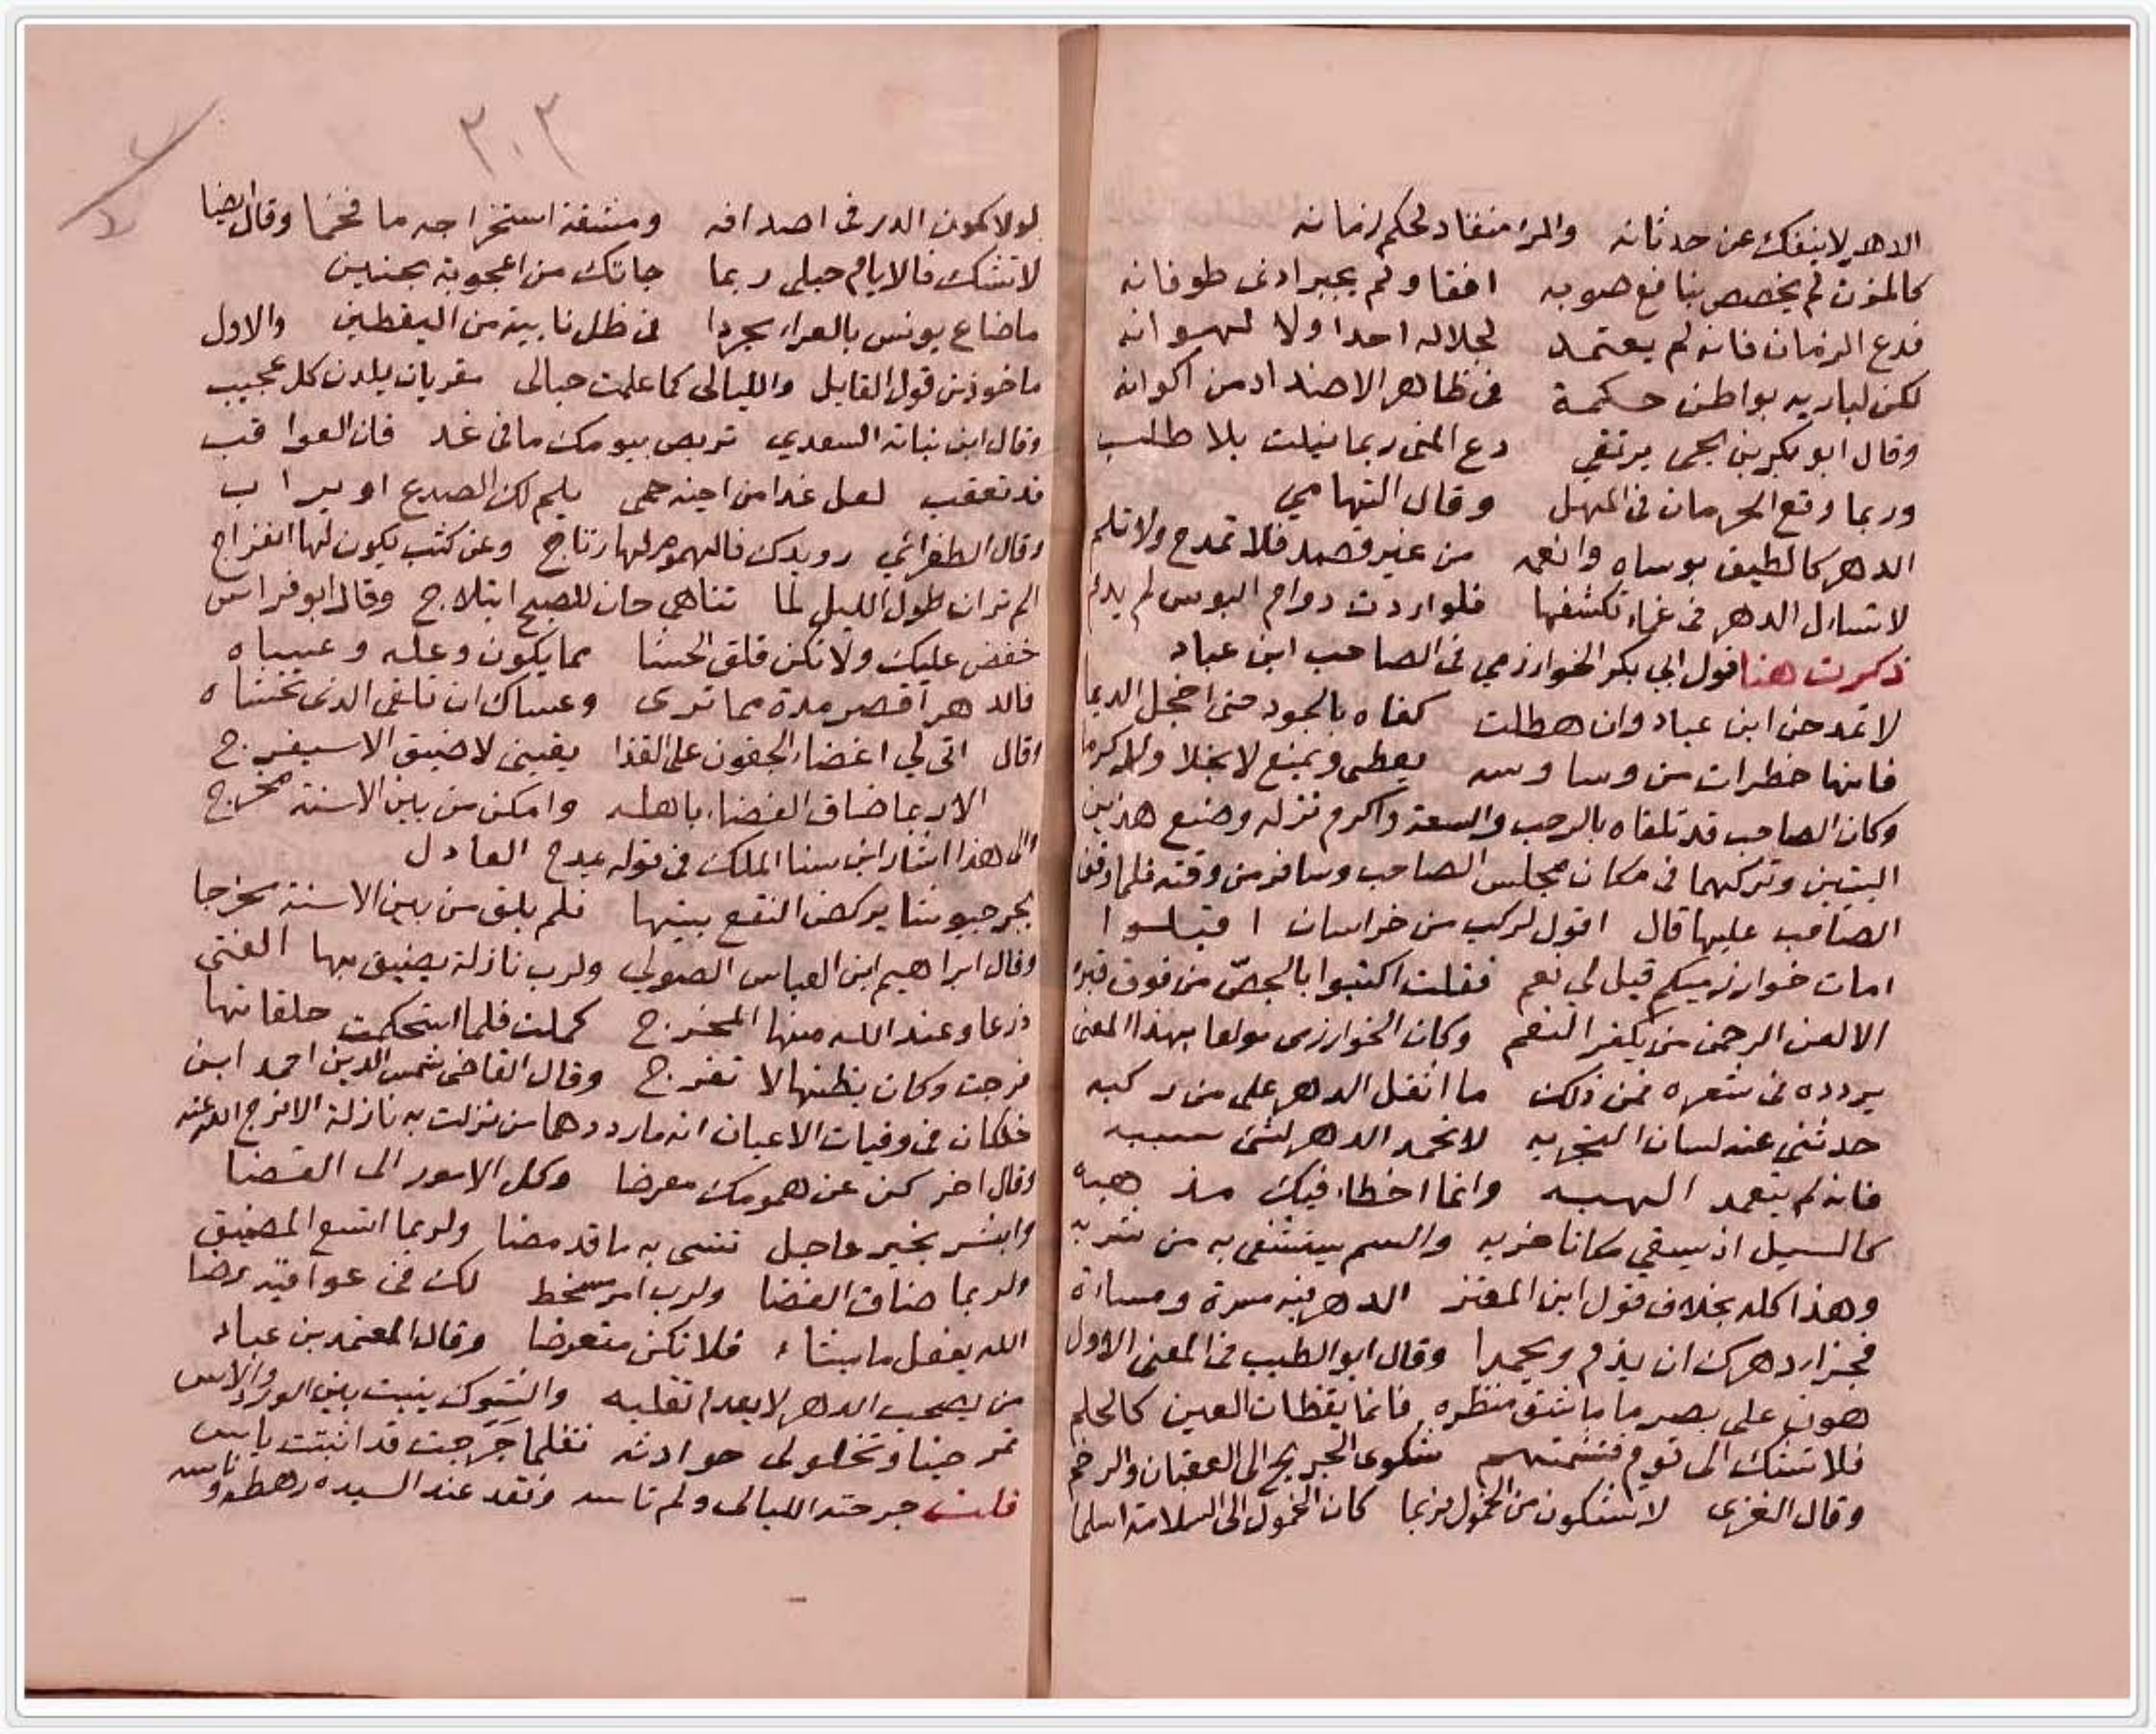 الدهر لا ينفك عن حدثانه والمرء منقاد لحكم زمانه
كالمزن لم يخصص بنافع صوبه افقا ولم يجبر ادنى طوفانه
فدع الزمان فانه لم يعتمد لجلاله احدا ولا لهوانه
لكن لباريه بواطن حكمة فى ظاهر الاضداد من اكوانه
وقال ابو بكر بن يحيى يرتقي دع المنى ربما نيلت بلا طلب
وربما وقع الحرمان فى المهل وقال التهامي
الدهر كالطيف بوساه وانعمه من غير قصد فلا تمدح ولا تلم
لا تسال الدهر فى غماء تكشفها فلو اردت دوام البوس لم يدم
ذكرت هنا قول ابي بكر الخوارزمي فى الصاحب ابن عباد
لا تمدحن ابن عباد وان هطلت كفاه بالجود حتى اخجل الديما
فانها خطرات من وساوسه يعطى ويمنع لا بخلا ولا كرما
وكان الصاحب قد تلقاه بالرحب والسعة واكرم نزله وصنع هذين
البيتين وتركهما فى مكان مجلس الصاحب وسافر من وقته فلما وقف
الصاحب عليها قال اقول لركب من خراسان اقبلوا
امات خوارزميكم قيل لي نعم فقلت اكتبوا بالجصّ من فوق قبره
الا لعن الرحمن من يكفر النعم وكان الخوارزمى مولعا بهذا المعنى
يردده فى شعره فمن ذلك ما اثقل الدهر على من ركبه
حدثني عنه لسان التجربه لا تحمد الدهر لشئ سببه
فانه لم يتعمد الهبه وانما اخطاء فيك مذهبه
كالسيل اذ يسقي مكانا خربه والسم يستشفى به من شربه
وهذا كله بخلاف قول ابن المعتز الدهر فيه مسرة ومساءة
فجزاء دهرك ان يذم ويحمدا وقال ابو الطيب فى المعنى الاول
هون على بصر ما شق منظره فانما يقظات العين كالحلم
فلا تشك الى قوم فتشمتهم شكوى الجريح الى العقبان والرخم
وقال الغزى لا تشكون من الخمول فربما كان الخمول الى السلامة سلما
٣٠٣
لولا كمون الدر فى اصدافه ومشقة استخراجه ما فخما وقال ايضا
لا تشك فالايام حبلى ربما جاتك من اعجوبة بجنين
ما ضاع يونس بالعراء مجردا فى ظل نابية من اليقطين والاول
ماخوذ من قول القايل والليالى كما علمت حبالى مقربات يلدن كل عجيب
وقال ابن نباتة السعدي تربص بيومك ما فى غد فان العواقب
قد تعقب لعل غدا من اخيه حمى يلم لك الصدع او يراب
وقال الطغرائي رويدك فالهموم لها رتاج وعن كثب يكون لها انفراج
الم تر ان طول الليل لما تناهى حان للصبح ابتلاج وقال ابو فراس
خفض عليك ولا تكن قلق الحشا مما يكون وعله وعساه
فالدهر اقصر مدة مما ترى وعساك ان تلقى الذى تخشاه
وقال اتى لي اغضاء الجفون على القذا يقيني لا ضيق الا سيفرج
الا ربما ضاق الفضاء باهله وامكن من بين الاسنة مخرج
والى هذا اشار ابن سنا الملك فى قوله يمدح العادل
يجر جيوشا يركض النقع بينها فلم يلق من بين الاسنة مخرجا
وقال ابراهيم ابن العباس الصولي ولرب نازلة يضيق بها الفتى
ذرعا وعند الله منها المخرج كملت فلما استحكمت حلقاتها
فرجت وكان يظنها لا تفرج وقال القاضى شمس الدين احمد ابن
خلكان فى وفيات الاعيان انه ما رددها من نزلت به نازلة الا فرج الله عنه
وقال اخر كن عن همومك معرضا وكل الامور الى القضا
وابشر بخير عاجل تنسى به ما قد مضا ولربما اتسع المضيق
ولربما ضاق الفضا ولرب امر مسخط لك فى عواقبه رضا
الله يفعل ما يشاء فلا تكن متعرضا وقال المعتمد بن عباد
من يصحب الدهر لا يعدم تقلبه والشوك ينبت بين الورد والاس
تمر حينا وتحلولى حوادثه فقلما جرحت قد اثبتت ياس
قلت جرحته الليالى ولم تاسه وفقد عند السيده رهطه وناسه